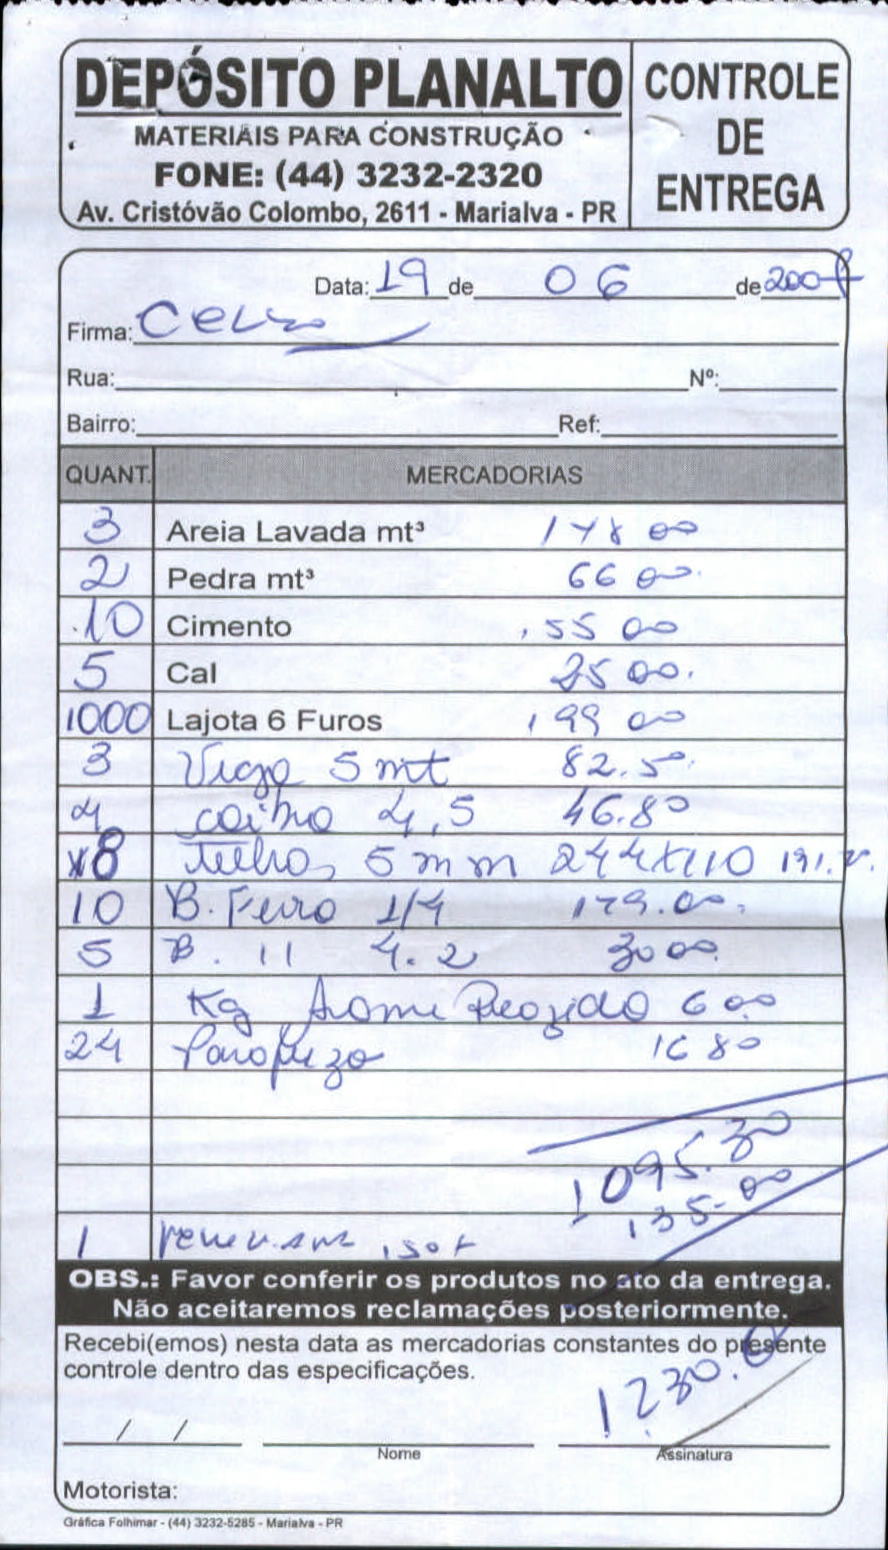 DEPÓSITO PLANALTO
MATERIAIS PARA CONSTRUÇÃO
FONE: (44) 3232-2320
Av. Cristóvão Colombo, 2611 - Marialva - PR
CONTROLE
DE
ENTREGA
Data: 19 de 06 de 200
Firma:
Rua: Nº:
Bairro: Ref:
QUANT. MERCADORIAS
3 Areia Lavada mt³ 178 00
2 Pedra mt³ 66 00
10 Cimento 155 00
5 Cal 25 00
1000 Lajota 6 Furos 199 00
3 Viga 5 mt 82.50
4 caibro 4,5 46.80
8 telha 5 mm 244x110 191.20
10 B. Ferro 1/4 00
5 B. 11 4.2 30 00
1 Kg Arame Recozido 6 00
24 Parafuzo 16 80
1095.30
135-00
1
OBS.: Favor conferir os produtos no ato da entrega.
Não aceitaremos reclamações posteriormente.
Recebi(emos) nesta data as mercadorias constantes do presente
controle dentro das especificações.
1230.0
/ /
Nome
Assinatura
Motorista:
Gráfica Folhimar - (44) 3232-5285 - Marialva - PR